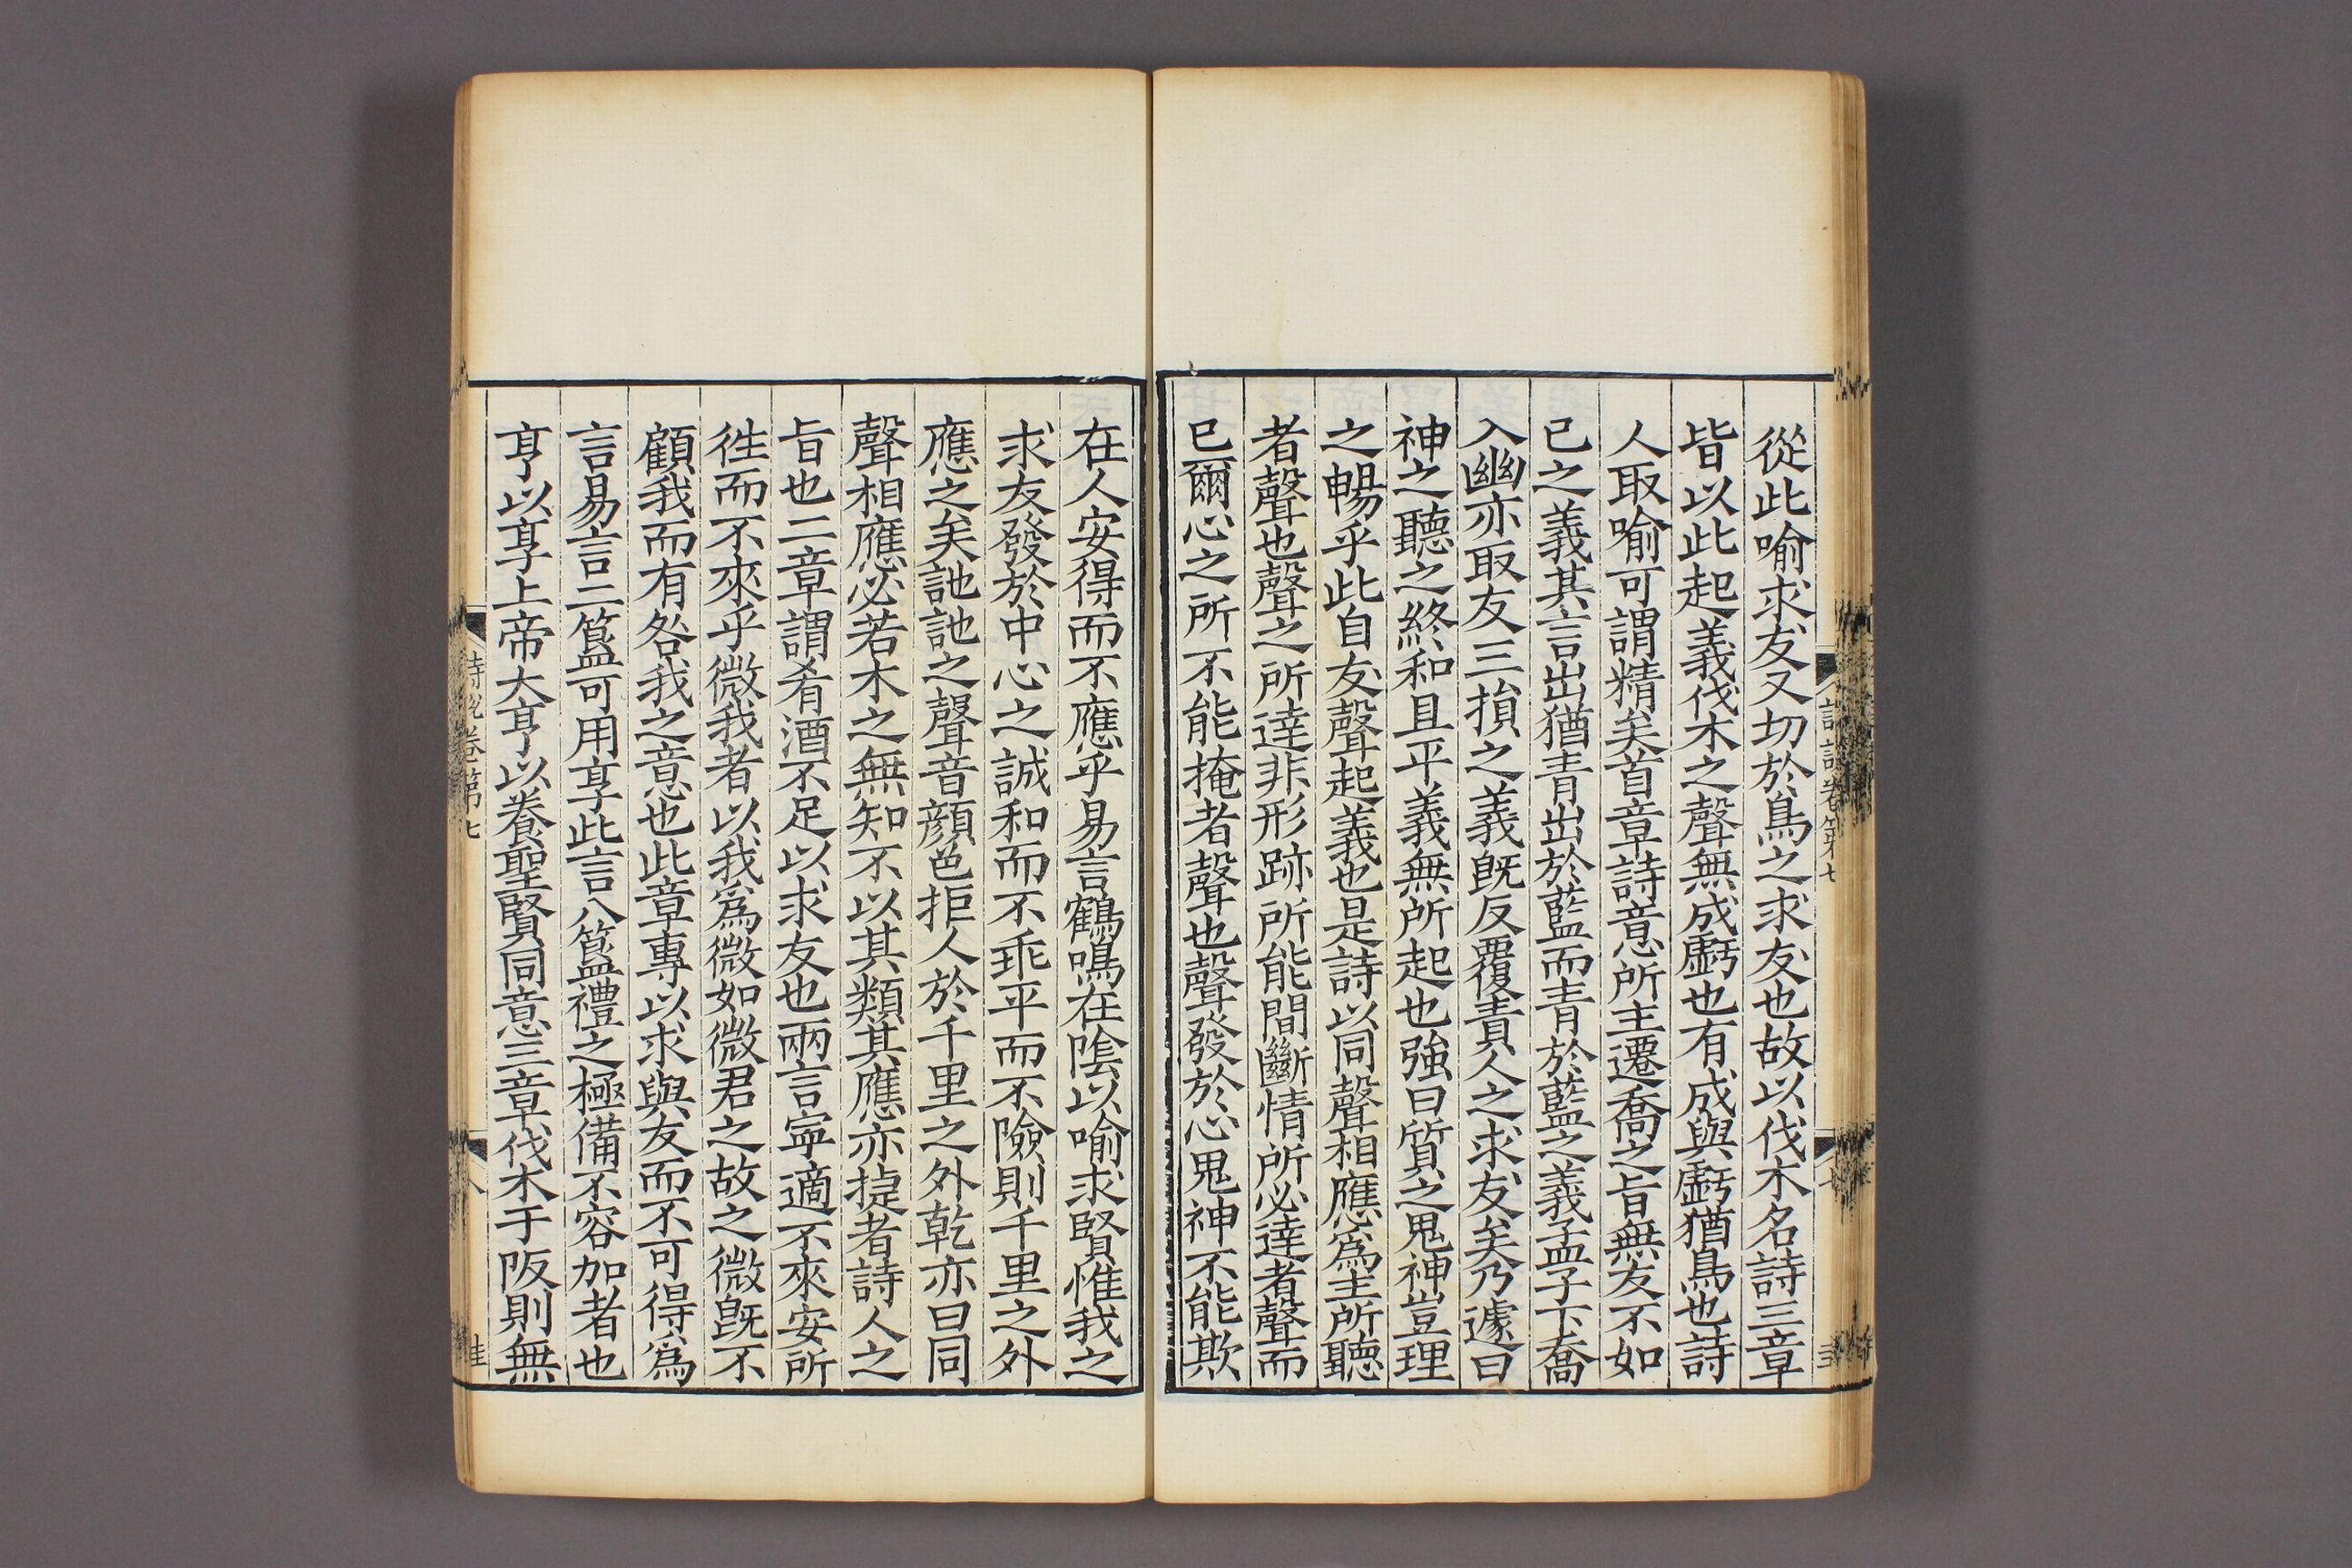 從此喻求友又切於鳥之求友也故以伐木名詩三章
皆以此起義伐木之聲無成虧也有成與虧猶鳥也詩
人取喻可謂精矣首章詩意所主遷喬之旨無友不如
已之義其言出猶青出於藍而青於藍之義孟子下喬
入幽亦取友三損之義旣反覆責人之求友矣乃遽曰
神之聽之終和且平義無所起也強曰質之鬼神豈理
之暢乎此自友聲起義也是詩以同聲相應爲主所聽
者聲也聲之所達非形跡所能間斷情所必達者聲而
已爾心之所不能掩者聲也聲發於心鬼神不能欺
在人安得而不應乎易言鶴鳴在陰以喻求賢惟我之
求友發於中心之誠和而不乖平而不險則千里之外
應之矣訑訑之聲音顔色拒人於千里之外乾亦曰同
聲相應必若木之無知不以其類其應亦捷者詩人之
旨也二章謂肴酒不足以求友也兩言寧適不來安所
徃而不來乎微我者以我爲微如微君之故之微旣不
顧我而有咎我之意也此章專以求與友而不可得爲
言易言二簋可用享此言八簋禮之極備不容加者也
亨以享上帝大亨以養聖賢同意三章伐木于阪則無
詩說卷第七
八
詩說卷第七
七